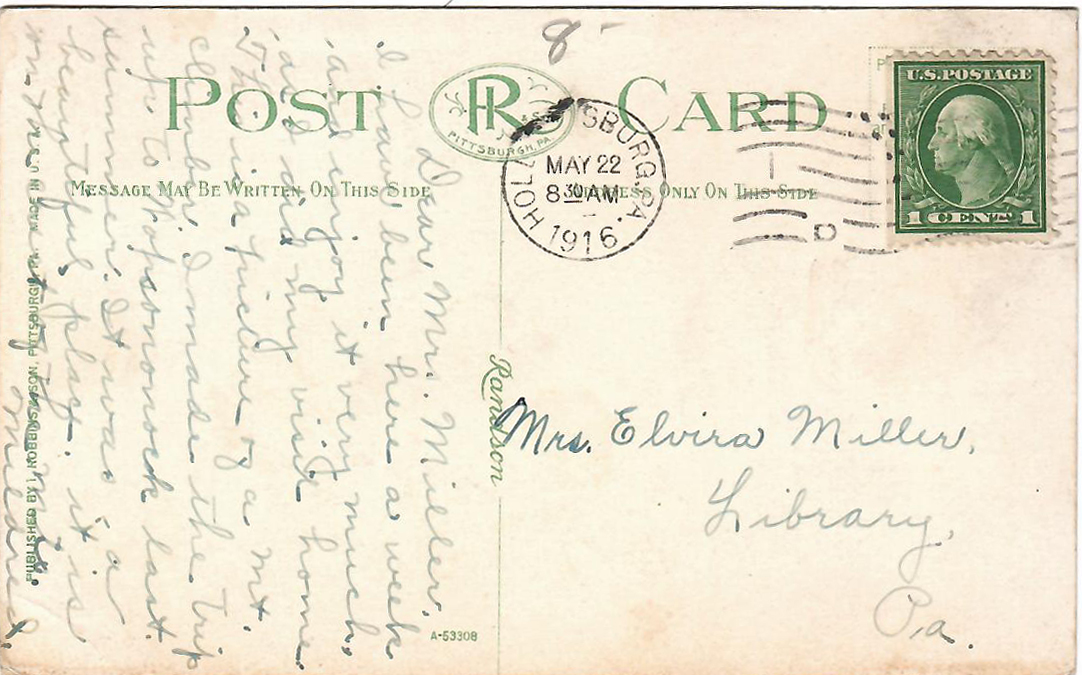 8
POST CARD
R & S
PITTSBURGH, PA.
MESSAGE MAY BE WRITTEN ON THIS SIDE
ADDRESS ONLY ON THIS SIDE
HOLLI SBURG, PA.
MAY 22
8 30 AM
1916
U.S. POSTAGE
1 CENT 1
Dear Mrs. Miller.
I have been here a week
and injoy it very much,
and my visit home.
This is a picture of a mt.
climber. I made the trip
up to Wopsononock last
summer. It was a
beautyful place. it is
on top of the Mt's.
Mildred.
PUBLISHED BY I. ROBBINS & SON, PITTSBURGH, PA. MADE IN U.S.A.
Randson
A-53308
Mrs. Elvira Miller,
Library,
Pa.